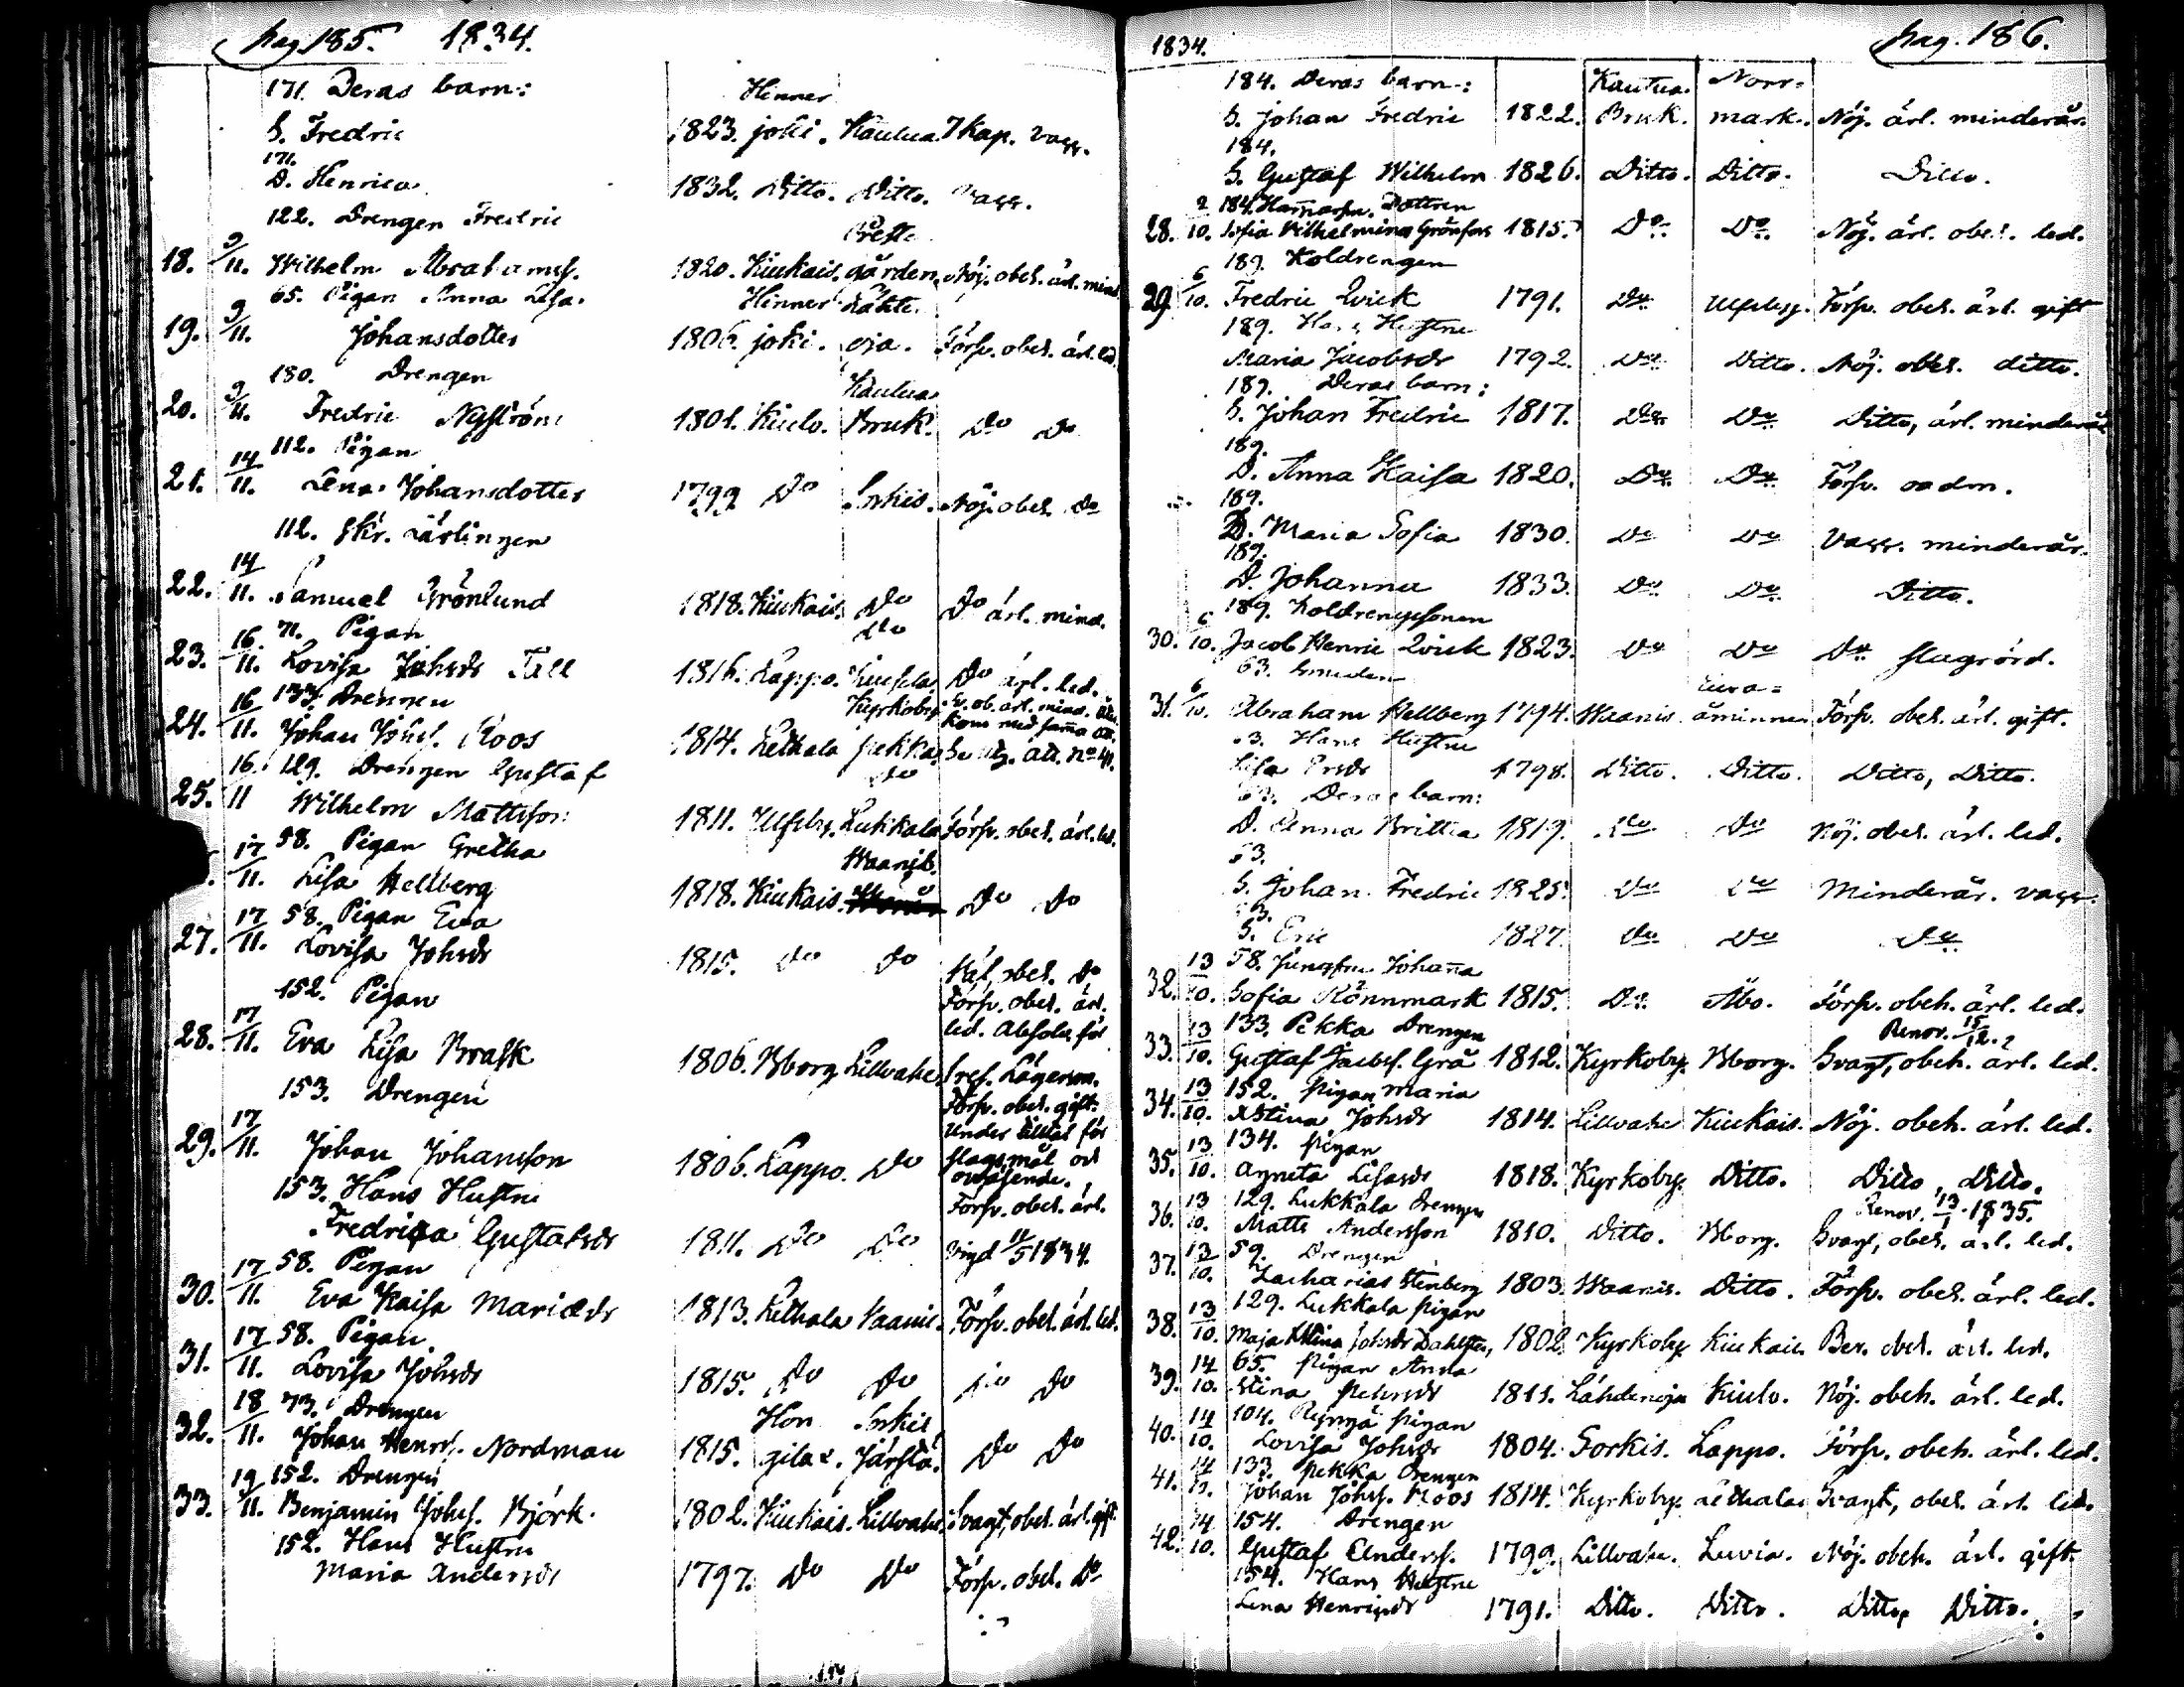 pag. 185. 1834.
171. Deras barn: Hinner
S. Fredric 1823. joki. Kautua Kap. vacc.
171.
D. Henrica 1832. Ditto. Ditto. vacc.
122. Drengen Fredric Prest
18. 9/11. Wilhelm Abrahamss. 1820. Kiukais. gården. Nöj. obeh. ärl. mind.
65. Pigan Anna Lisa Hinner Lähte
19. 9/11. Johansdotter 1806. joki. oja. Försv. obeh. ärl. led.
180. Drengen Kautua
20. 9/11. Fredric Nyström 1801. Kiulo. Bruk. Do Do
112. Pigan
21. 14/11. Lena Johansdotter 1799 Do Sorkis. Nöj. obeh. Do
112. Skr. Lärlingen
22. 14/11. Samuel Grönlund 1818. Kiukais. Do Do ärl. mind.
71. Pigan Do
23. 16/11. Lovisa Johsdr Tall 1816. Lappo. Do ärl. led.
133. Drengen Kyrkoby Sv. ob. ärl. mind.
kom med samma att.
24. 16/11. Johan Johss. Roos 1814. Lethala pekka Se utg. att. No 41.
129. Drengen Gustaf Do
25. 16/11 Wilhelm Mattsson 1811. Ulfsby. Lukkala Försv. obeh. ärl. led.
58. Pigan Gretha Waanis.
17/11. Lisa Hellberg 1818. Kiukais. Do Do
58. Pigan Eva
27. 17/11. Lovisa Johsdr 1815. Do Do Käl. obeh. Do
152. Pigan Försv. obeh. ärl.
led. Absolv. för
28. 17/11. Eva Lisa Brask 1806. Bborg Lillvahe. 1 res. Lägersm.
153. Drengen Försv. obeh. gift.
under tilltal för
29. 17/11. Johan Johansson 1806. Lappo. Do slagsmål och
oväsende.
153. Hans Hustru Försv. obeh. ärl.
Fredrica Gustafsdr 1811. Do Do Vigd 11/5 1834.
58. Pigan
30. 17/11. Eva Kaisa Mariædr 1813. Lethala Vaanis. Försv. obeh. ärl. led.
58. Pigan
31. 17/11. Lovisa Johsdr 1815. Do Do Do Do
73. Drengen Hon Sorkis
32. 18/11. Johan Henrss. Nordman 1815. gilax. Järstä. Do Do
152. Drengen
33. 19/11. Benjamin Johss. Björk. 1802. Kiukais. Lillvahe. Svagt, obeh. ärl. gift.
152. Hans Hustru
Maria Andersdr 1797. Do Do Försv. obeh. Do
1834. pag. 186.
184. Deras barn: Kautua Norr-
S. Johan Fredric 1822. Bruk. mark. Nöj. ärl. minderår.
184.
S. Gustaf Wilhelm 1826. Ditto. Ditto. Ditto.
184. Dottren
28. 2/10. Sofia Wilhelmina Grönfors 1815. Do Do Nöj. ärl. obeh. led.
189. Koldrengen
29. 6/10. Fredric Qvick 1791. Do Ulfsby. Försv. obeh. ärl. gift
189. Hans Hustru
Maria Jacobsdr 1792. Do Ditto. Nöj. obeh. ditto.
189. Deras barn:
S. Johan Fredric 1817. Do Do Ditto, ärl. minderår
189.
D. Anna Kaisa 1820. Do Do Försv. oadm.
189.
D. Maria Sofia 1830. Do Do Vacc. minderår.
189.
D. Johanna 1833. Do Do Ditto.
189. Koldrengssonen
30. 6/10. Jacob Henric Qvick 1823. Do Do Do slagrörd.
63. Smeden Eura-
31. 6/10. Abraham Hellberg 1794. Waanis. åminne. Försv. obeh. ärl. gift.
63. Hans Hustru
Lisa Ersdr 1798. Ditto. Ditto. Ditto, Ditto.
63. Deras barn:
D. Anna Britta 1819. Do Do Nöj. obeh. ärl. led.
63.
S. Johan Fredric 1825. Do Do Minderår. vacc.
63.
S. Eric 1827. Do Do Do
58. Jungfru Johanna
32. 13/10. Sofia Rönnmark 1815. Do Åbo. Försv. obeh. ärl. led.
133. Pekka Drengen Renov. 15/12.
33. 13/10. Gustaf Jacobss. Grå 1812. Kyrkoby. Bborg. Svagt, obeh. ärl. led.
152. Pigan Maria
34. 13/10. Xstina Johsdr 1814. Lillvahe Kiukais. Nöj. obeh. ärl. led.
134. Pigan
35. 13/10. Agneta Lisasdr 1818. Kyrkoby. Ditto. Ditto, Ditto.
129. Lukkala Drengen Renov. 13/1 1835.
36. 13/10. Matts Andersson 1810. Ditto. Bborg. Svagt, obeh. ärl. led.
59. Drengen
37. 13/10. Zacharias Stenberg 1803. Waanis. Ditto. Försv. obeh. ärl. led.
129. Lukkala pigan
38. 13/10. Maja Stina Johsdr 1802. Kyrkoby Kiukais. Ber. obeh. ärl. led.
65. Pigan Anna
39. 14/10. Stina 1811. Lähdenoja Kiulo. Nöj. obeh. ärl. led.
104. pigan
40. 14/10. Lovisa Johsdr 1804. Sorkis. Lappo. Försv. obeh. ärl. led.
133. Pekka Drengen
41. 14/10. Johan Johss. Roos 1814. Kyrkoby. Lethala Svagt, obeh. ärl. led.
154. Drengen
42. 14/10. Gustaf Anderss. 1799. Lillvahe. Luvia. Nöj. obeh. ärl. gift.
154. Hans Hustru
Lena Henricsdr 1791. Ditto. Ditto. Ditto, Ditto.